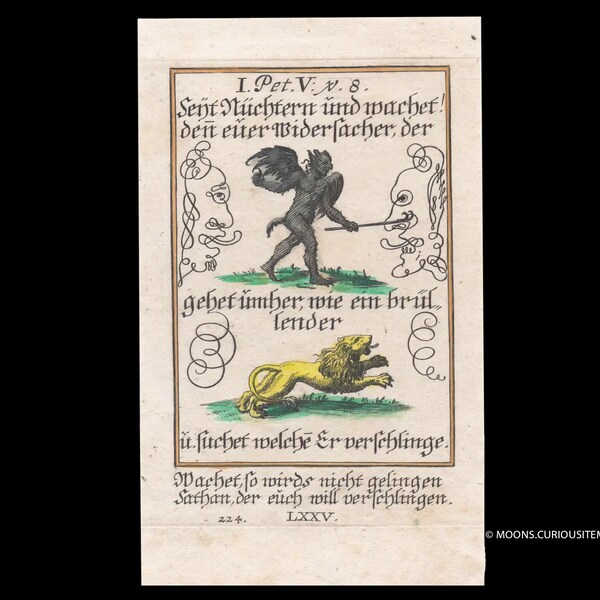 I. Pet. V: v. 8.
Seÿt Nüchtern ünd wachet!
den̄ eüer Widersacher, der
gehet ümher, wie ein brül„
lender
ü. suchet welchē Er verschlinge.
Wachet, so wirds nicht gelingen
Sathan, der eüch will verschlingen.
224. LXXV.
© MOONS.CURIOUSITEM